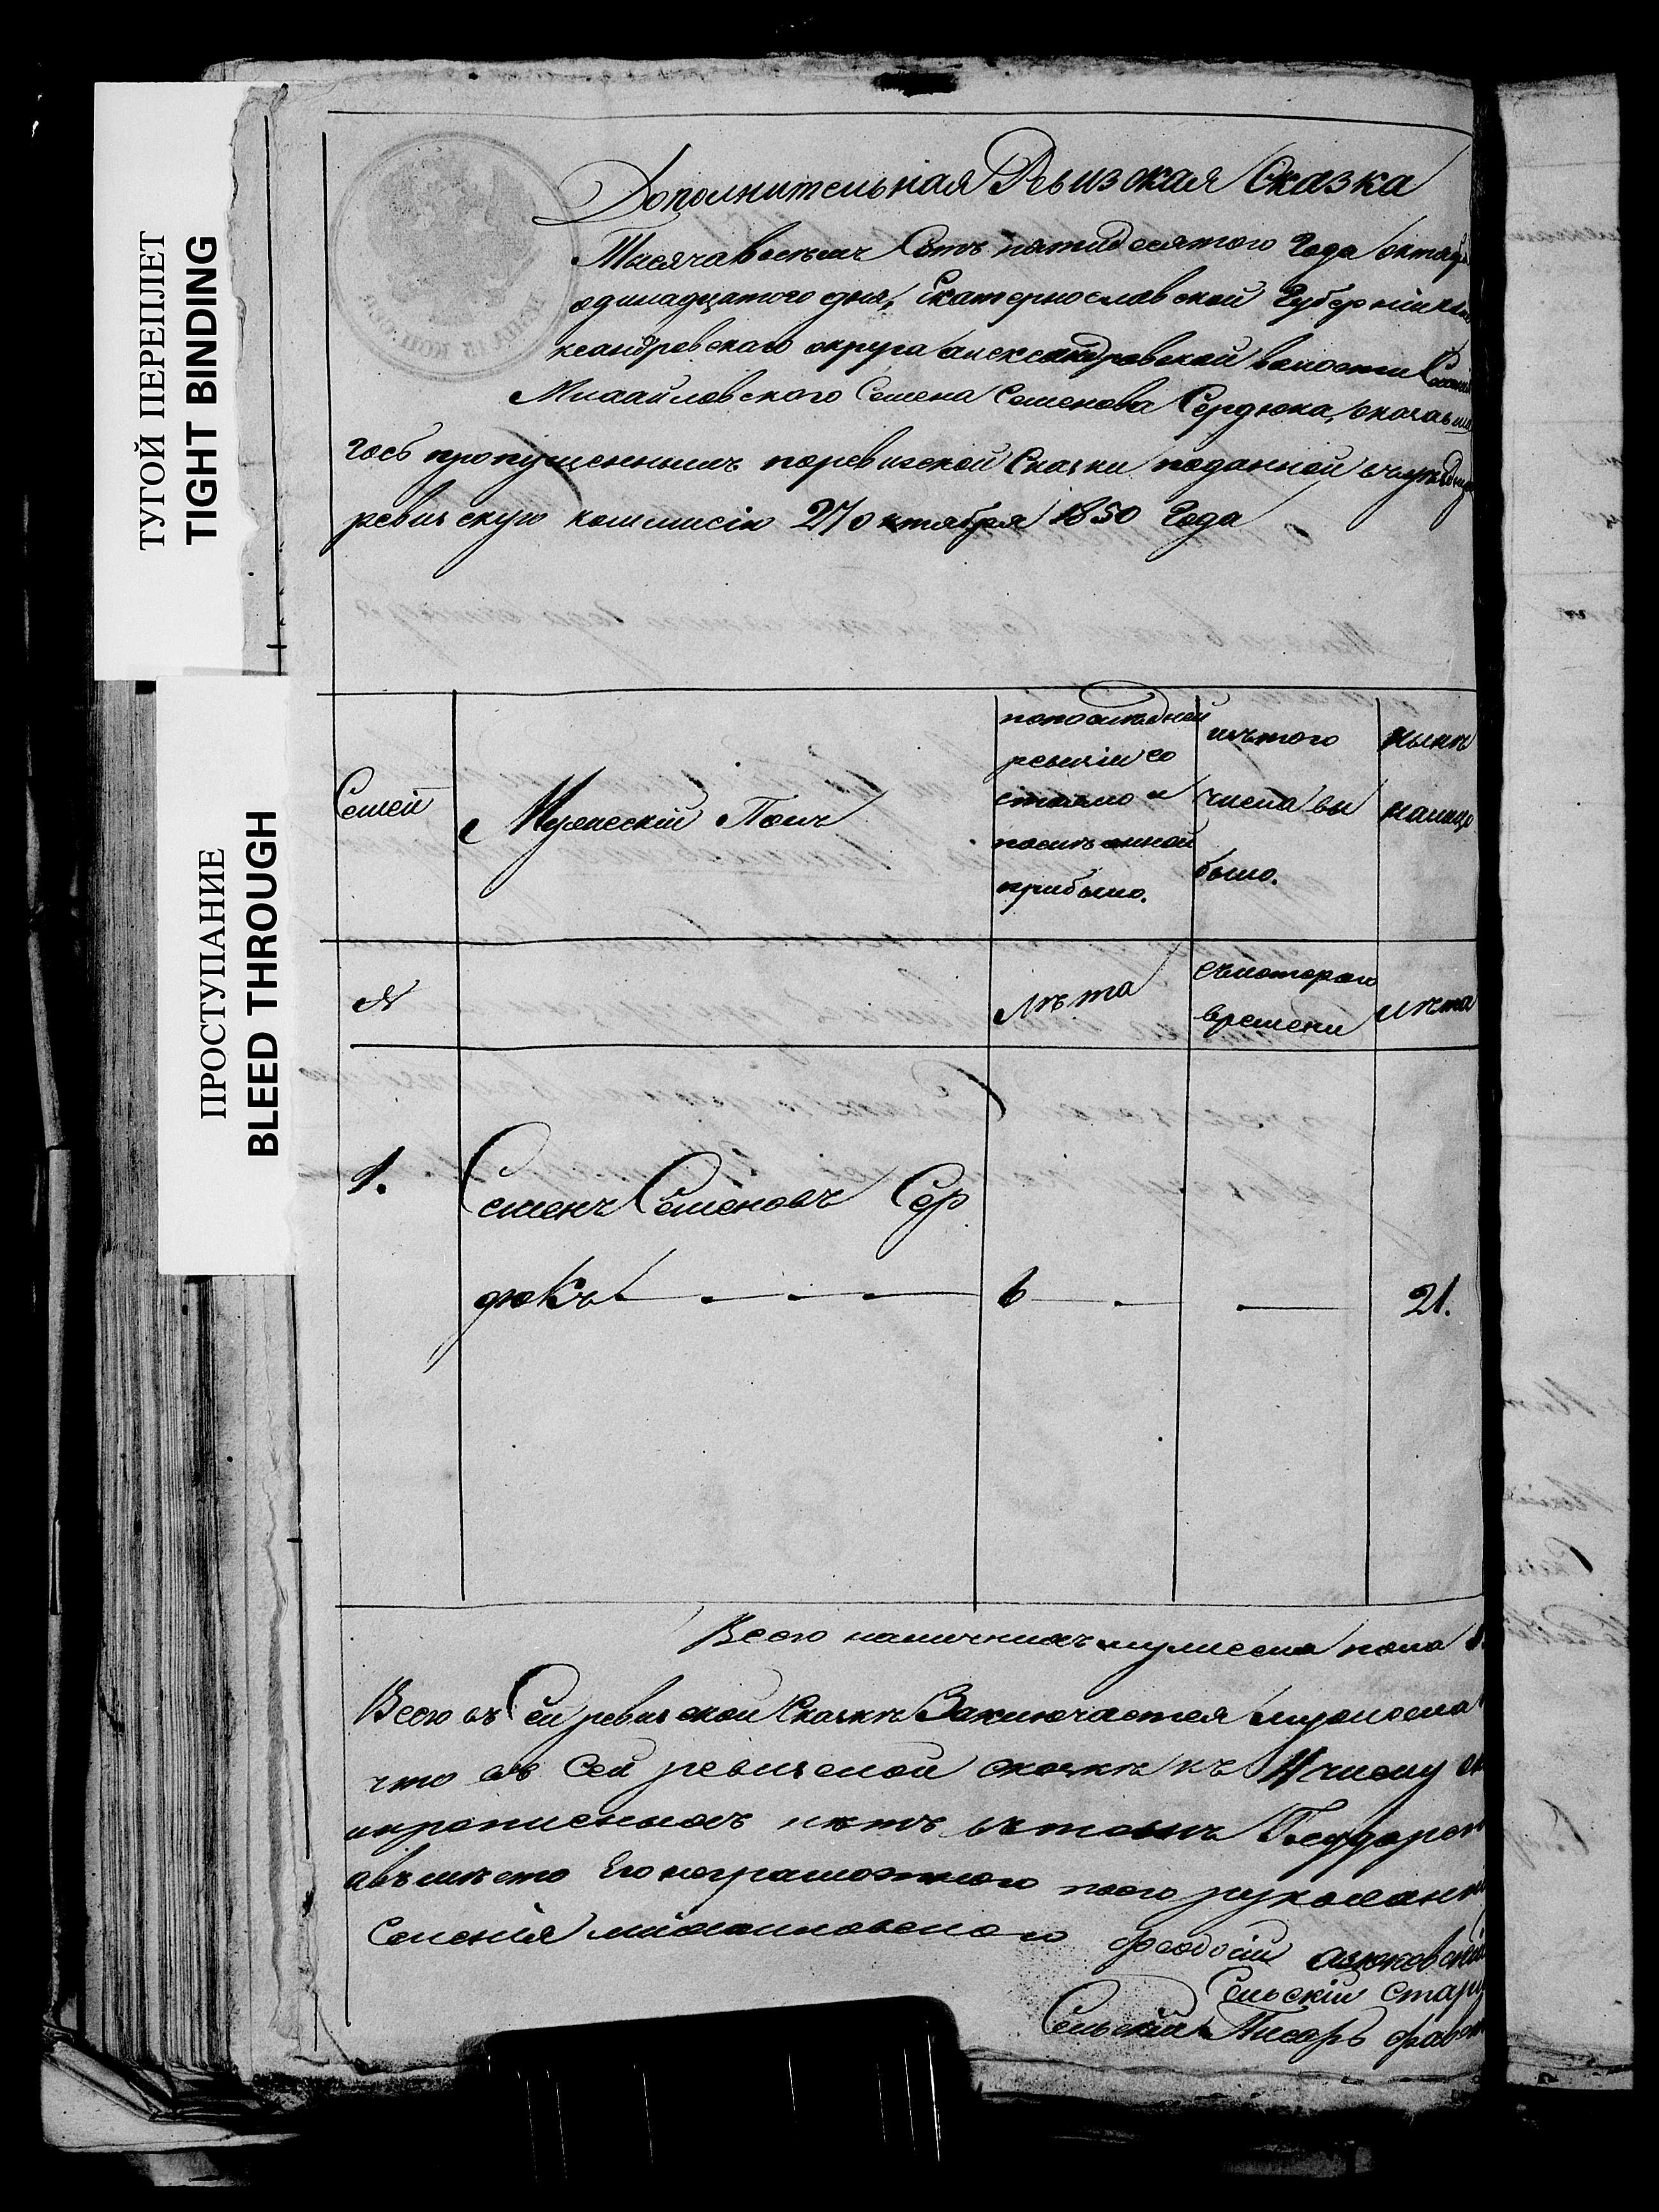 ТУГОЙ ПЕРЕПЛЕТ
TIGHT BINDING
ПРОСТУПАНИЕ
BLEED THROUGH
Дополнительная Ревизская Сказка
Тисяча восемь Сотъ пятидесятого Года октяб
одинадцатого дня, Екатеринославской Губерніи Але
ксандровского округа александровской волости
Михайловского Семена Семенова Сердюка, оказавша
гось пропущеннымъ поревизской Сказки поданной
ревизскую коммисію 27 октября 1850 Года
Семей
Мужескій Полъ
попослѣдней
ревизіи со
стояло и
послѣ оной
прибыло.
изътого
числа вы
было.
нынѣ
налицо
№
лѣта
съкоторого
времени
лѣта
1.
Семенъ Семеновъ Сер
дюкъ
6
21.
Всего наличнихъ мужеска пола
Всего въ Сей ревизской Сказкѣ Заключается мужеска
что въ Сей ревизской сказкѣ къ
нѣтъ вътомъ
его неграмотного
Селенія михайловского
феодосій
Сельскій Стар
Сельскій Писарь